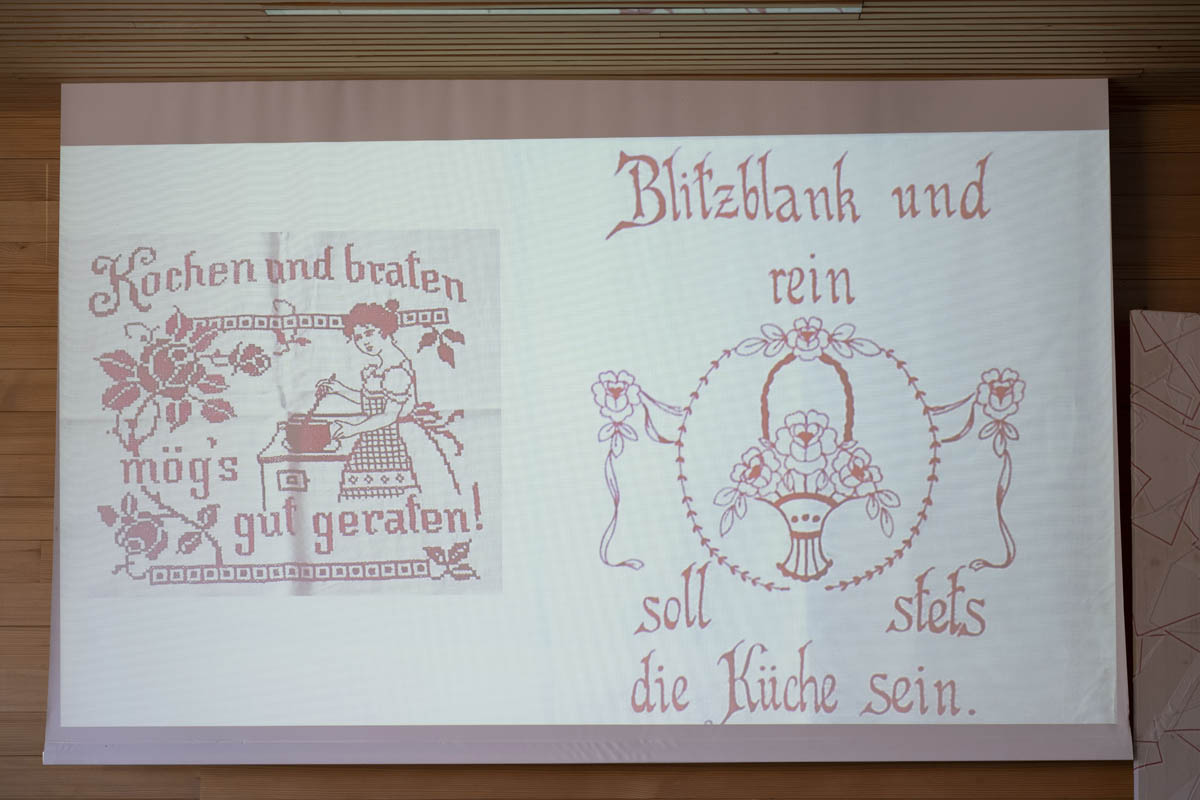 Kochen und braten
mög's
gut geraten!
Blitzblank und
rein
soll stets
die Küche sein.